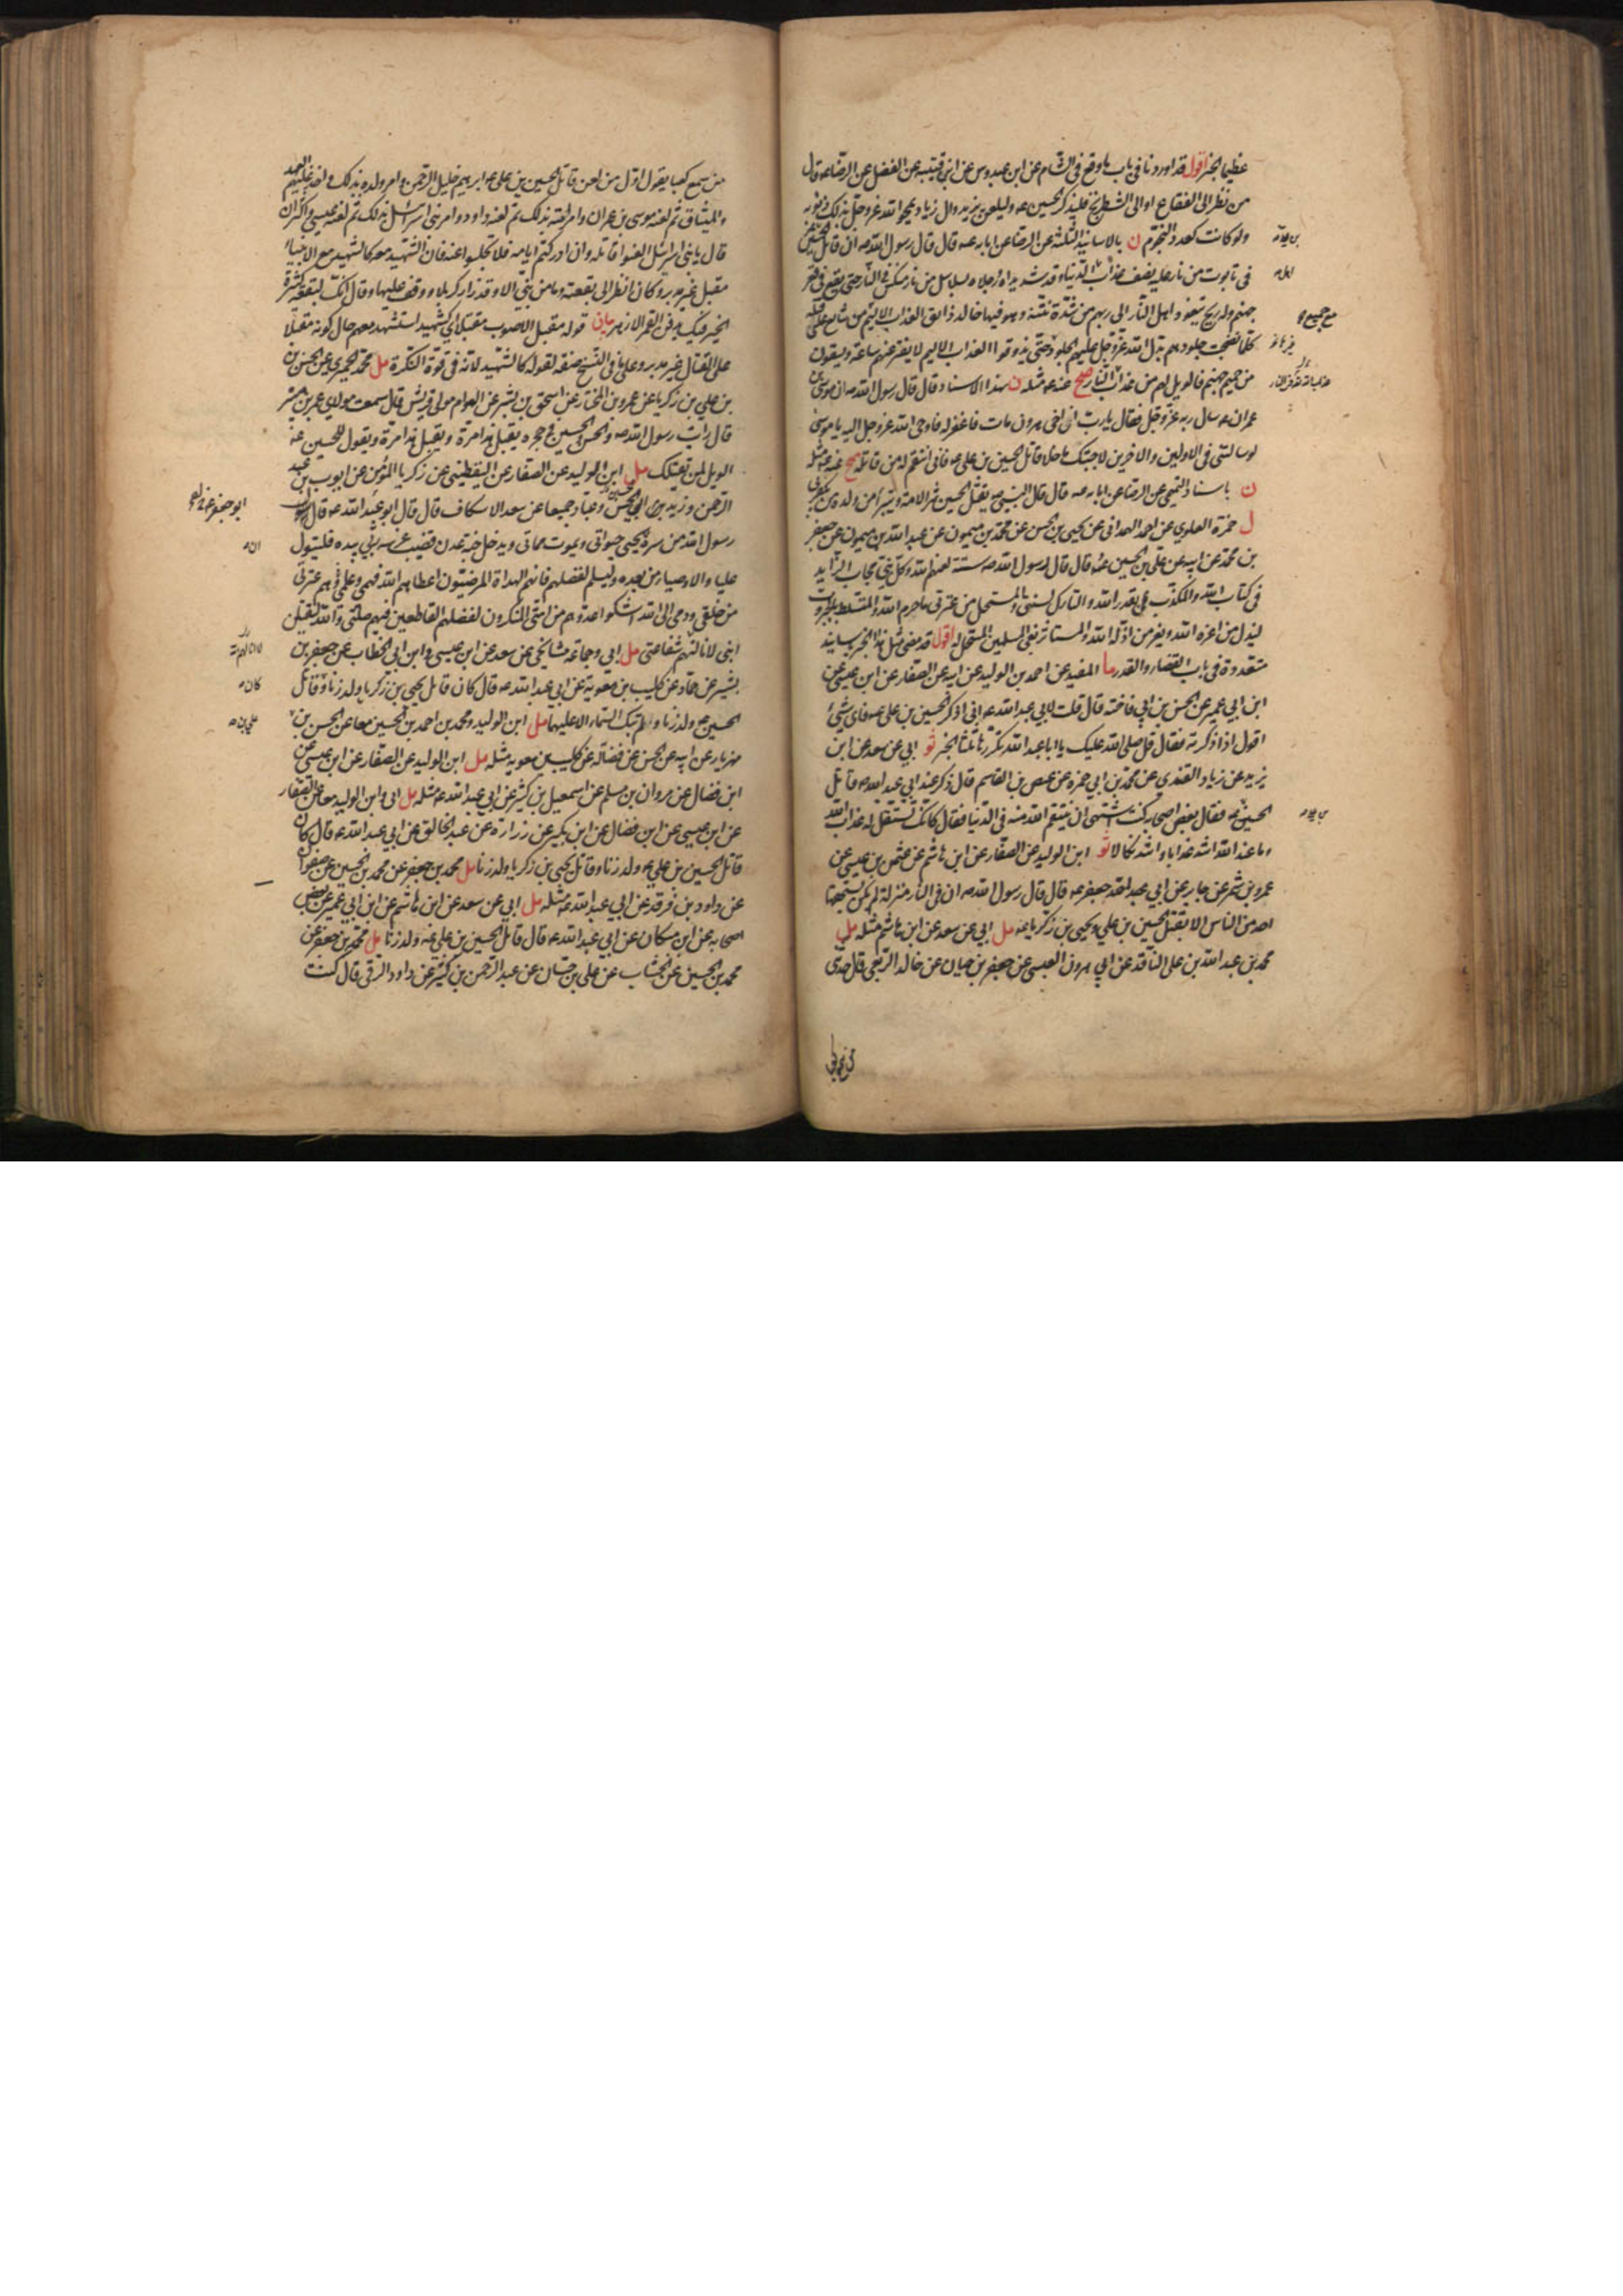 عظيما الخبر اقول قد اوردنا فى باب ما وقع فى الشام عن ابن عبدوس عن ابن قتيبه عن الفضل عن الرضا عه قال
من نظر الى الفقاع او الى الشطرنج فليذكر الحسين عه وليلعن يزيد وال زياد يمحو الله عز وجل بذلك ذنوبه
ولو كانت كعدد النجوم ن بالاسانيد الثلثة عن الرضا عن ابايه عه قال قال رسول الله صه ان قاتل الحسين
فى تابوت من نار عليه نصف عذاب اهل الدنيا وقد شد يداه ورجلاه بسلاسل من نار منكس فى النار حتى يقع فى قعر
جهنم وله ريح يتعوذ اهل النار الى ربهم من شدة نتنه وهو فيها خالد ذائق العذاب الاليم من شايع على قتله
كلما نضجت جلودهم بدل الله عز وجل عليهم الجلود حتى يذوقوا العذاب الاليم لا يفتر عنهم ساعة ويسقون
من حميم جهنم فالويل لهم من عذاب النار صح عنه عه مثله ن بهذا الاسناد قال قال رسول الله صه ان موسى بن
عمران عه سال ربه عز وجل فقال يا رب ان اخى هرون مات فاغفر له فاوحى الله عز وجل اليه يا موسى
لو سالتنى فى الاولين والاخرين لاجبتك ما خلا قاتل الحسين بن على عه فانى انتقم له من قاتله صح عنه عه مثله
ن باسناد التميمى عن الرضا عن ابايه عه قال قال النبى صه يقتل الحسين شر الامة ويتبرا من ولده من يكفر بى
ل حمزة العلوى عن احمد الهمدانى عن يحيى بن الحسن عن محمد بن ميمون عن عبد الله بن ميمون عن جعفر
بن محمد عن ابيه عن على بن الحسين عه قال قال رسول الله صه ستة لعنهم الله وكل نبى مجاب الزايد
فى كتاب الله والمكذب بقدر الله والتارك لسنتى والمستحل من عترتى ما حرم الله والمتسلط بالجبروت
ليذل من اعزه الله ويعز من اذله الله والمستاثر بفئ المسلمين المستحل له اقول قد مضى مثل هذا الخبر باسانيد
متعددة فى باب القضاء والقدر ما المفيد عن احمد بن الوليد عن ابيه عن الصفار عن ابن عيسى عن
ابن ابى عمير عن الحسن بن ابى فاخته قال قلت لابى عبد الله عه انى اذكر الحسين بن على عه فاى شئ
اقول اذا ذكرته فقال قل صلى الله عليك يا ابا عبد الله تكررها ثلثا الخبر ثو ابى عن سعد عن ابن
يزيد عن زياد القندى عن محمد بن ابى حمزه عن عيص بن القاسم قال ذكر عند ابى عبد الله عه قاتل
الحسين عه فقال بعض اصحابه كنت اشتهى ان ينتقم الله منه فى الدنيا فقال كانك تستقل له عذاب الله
وما عند الله اشد عذابا واشد نكالا ثو ابن الوليد عن الصفار عن ابن هاشم عن عثمن بن عيسى عن
عمرو بن شمر عن جابر عن ابى جعفر عه قال قال رسول الله صه ان فى النار منزلة لم يكن يستحقها
احد من الناس الا بقتل الحسين بن على ويحيى بن زكريا عه مل ابى عن سعد عن ابن هاشم مثله مل
محمد بن عبد الله بن على الناقد عن ابى هرون العبسى عن جعفر بن حيان عن خالد الربعى قال حدثنى
من سمع كعبا يقول اول من لعن قاتل الحسين بن على عه ابراهيم خليل الرحمن وامر ولده بذلك واخذ عليهم العهد
والميثاق ثم لعنه موسى بن عمران وامر امته بذلك ثم لعنه داود وامر بنى اسرائيل بذلك ثم لعنه عيسى واكثر ان
قال يا بنى اسرائيل العنوا قاتله وان ادركتم ايامه فلا تجلسوا عنه فان الشهيد معه كالشهيد مع الانبياء
مقبل غير مدبر وكانى انظر الى بقعته وما من نبى الا وقد زار كربلاء ووقف عليها وقال انك لبقعة كثيرة
الخير فيك يدفن القمر الازهر بيان قوله مقبل الاصوب مقبلا اى كشهيد استشهد معهم حال كونه مقبلا
على القتال غير مدبر وعلى ما فى النسخ صفة لقوله كالشهيد لانه فى قوة النكرة مل محمد الحميرى عن الحسن
بن على بن زكريا عن عمرو بن المختار عن اسحق بن بشر عن العوام مولى قريش قال سمعت مولاى عمر بن هبيرة
قال رايت رسول الله صه والحسن والحسين فى حجره يقبل هذا مرة ويقبل هذا مرة ويقول للحسين عه
الويل لمن يقتلك مل ابن الوليد عن الصفار عن اليقطينى عن زكريا المؤمن عن ايوب بن عبد
الرحمن وزيد ابى الحسن وعباد جميعا عن سعد الاسكاف قال قال ابو عبد الله عه قال
رسول الله من سره ان يحيى حيوتى ويموت مماتى ويدخل جنة عدن قضيب غرسه ربى بيده فليتول
عليا والاوصياء من بعده وليسلم لفضلهم فانهم الهداة المرضيون اعطاهم الله فهمى وعلمى وهم عترتى
من خلقى ودمى الى الله اشكوا عدوهم من امتى المنكرون لفضلهم القاطعين فيهم صلتى والله ليقتلن
ابنى لا نالتهم شفاعتى مل ابى وجماعة مشايخى عن سعد عن ابن عيسى وابن ابى الخطاب عن جعفر بن
بشير عن حماد عن كليب بن معوية عن ابى عبد الله عه قال كان قاتل يحيى بن زكريا ولد زنا وقاتل
الحسين عه ولد زنا ولم تبك السماء الا عليهما مل ابن الوليد ومحمد بن احمد بن الحسين معا عن الحسن بن
مهزيار عن ابيه عن الحسن عن فضالة عن كليب بن معويه مثله مل ابن الوليد عن الصفار عن ابن عيسى عن
ابن فضال عن مروان بن مسلم عن اسمعيل بن كثير عن ابى عبد الله عه مثله مل ابى وابن الوليد معا عن الصفار
عن ابن عيسى عن ابن فضال عن ابن بكير عن زرارة عن عبد الخالق عن ابى عبد الله عه قال كان
قاتل الحسين بن على عه ولد زنا وقاتل يحيى بن زكريا ولد زنا مل محمد بن جعفر عن محمد بن الحسين عن صفوان
عن داود بن فرقد عن ابى عبد الله عه مثله مل ابى عن سعد عن ابن هاشم عن ابن ابى عمير عن بعض
اصحابه عن ابن مسكان عن ابى عبد الله عه قال قاتل الحسين بن على عه ولد زنا مل محمد بن جعفر عن
محمد بن الحسين عن الخشاب عن على بن حسان عن عبد الرحمن بن كثير عن داود الرقى قال كنت